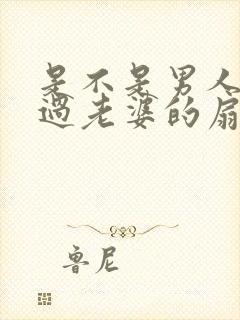 是不是男人
过老婆的扇
鲁尼